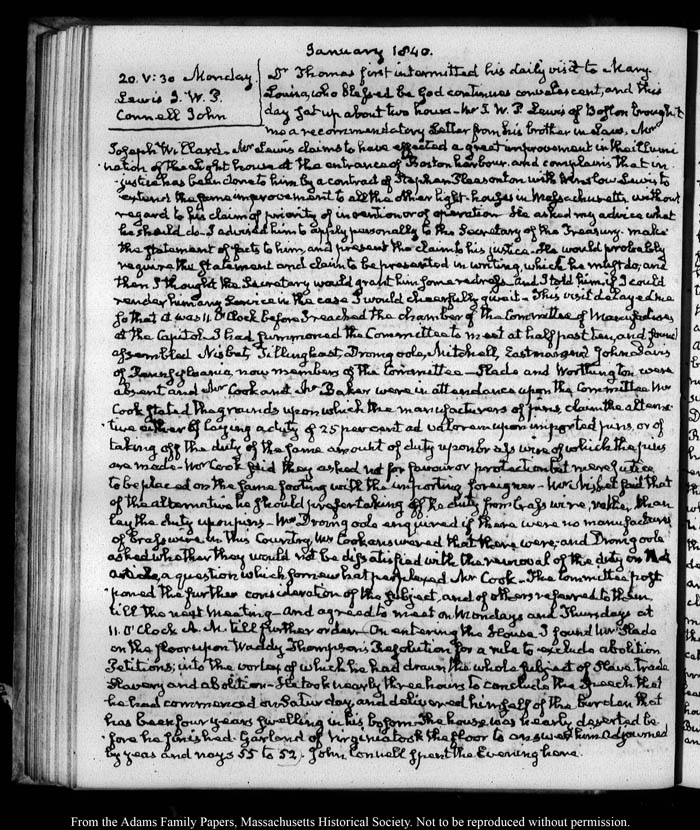 January 1840.
20. V: 30 Monday.
Lewis I. W. P.
Connell John
Dr Thomas first intermitted his daily visit to Mary
Louisa, who blessed be God continues convalescent, and this
day sat up about two hours. Mr I. W. P. Lewis of Boston brought
me a recommendatory Letter from his brother in Law, Mr
Joseph Willard. Mr Lewis claims to have effected a great improvement in the illumi
nation of the Light house at the entrance of Boston harbour, and complains that in-
justice has been done to him by a contract of Stephen Pleasonton with Winslow Lewis to
extend the same improvement to all the other light-houses in Massachusetts, without
regard to his claim of priority of invention or of operation. He asked my advice what
he should do. I advised him to apply personally to the Secretary of the Treasury. make
the statement of facts to him, and present the claim to his justice. He would probably
require the statement and claim to be presented in writing, which he might do, and
then I thought the Secretary would grant him some redress, and I told him if I could
render him any service in the case I would cheerfully give it. This visit delayed me
so that it was 11. O'Clock before I reached the chamber of the Committee of Manufactures
at the Capitol. I had summoned the Committee to meet at half past ten, and found
assembled Nisbet, Tillinghast, Dromgoole, Mitchell, Eastman, and John Davis
of Pennsylvania, now members of the Committee. Slade and Worthington were
absent and Mr Cook and Mr Baker were in attendance upon the Committee. Mr
Cook stated the grounds upon which the manufacturers of pins, claim the alterna-
tive either of laying a duty of 25 per cent ad valorem upon imported pins, or of
taking off the duty of the same amount of duty upon brass wire of which the pins
are made. Mr Cook said they asked not for favour or protection but mere justice
to be placed on the same footing with the importing foreigner. Mr Nisbet said that
of the alternative he should prefer taking off the duty from brass wire, rather than
lay the duty upon pins. Mr Dromgoole enquired if there were no manufactures
of brass wire in this Country, Mr Cook answered that there were; and Dromgoole
asked whether they would not be dissatisfied with the removal of the duty on that
Article, a question which somewhat perplexed Mr Cook. The Committee post
poned the further consideration of the subject, and of others referred to them
till the next meeting. and agreed to meet on Mondays and Thursdays at
11. O'Clock A. M. till further order. On entering the House I found Mr Slade
on the floor upon Waddy Thompson's Resolution for a rule to exclude abolition
Petitions; into the vortex of which he had drawn the whole subject of Slave trade
Slavery and abolition. He took nearly three hours to conclude the Speech that
he had commenced on Saturday, and delivered himself of the burden that
has been four years swelling in his bosom. The house was nearly deserted be
fore he finished. Garland of Virginia took the floor to answer him. Adjourned
by yeas and nays 55 to 52. John Connell spent the Evening here.
From the Adams Family Papers, Massachusetts Historical Society. Not to be reproduced without permission.